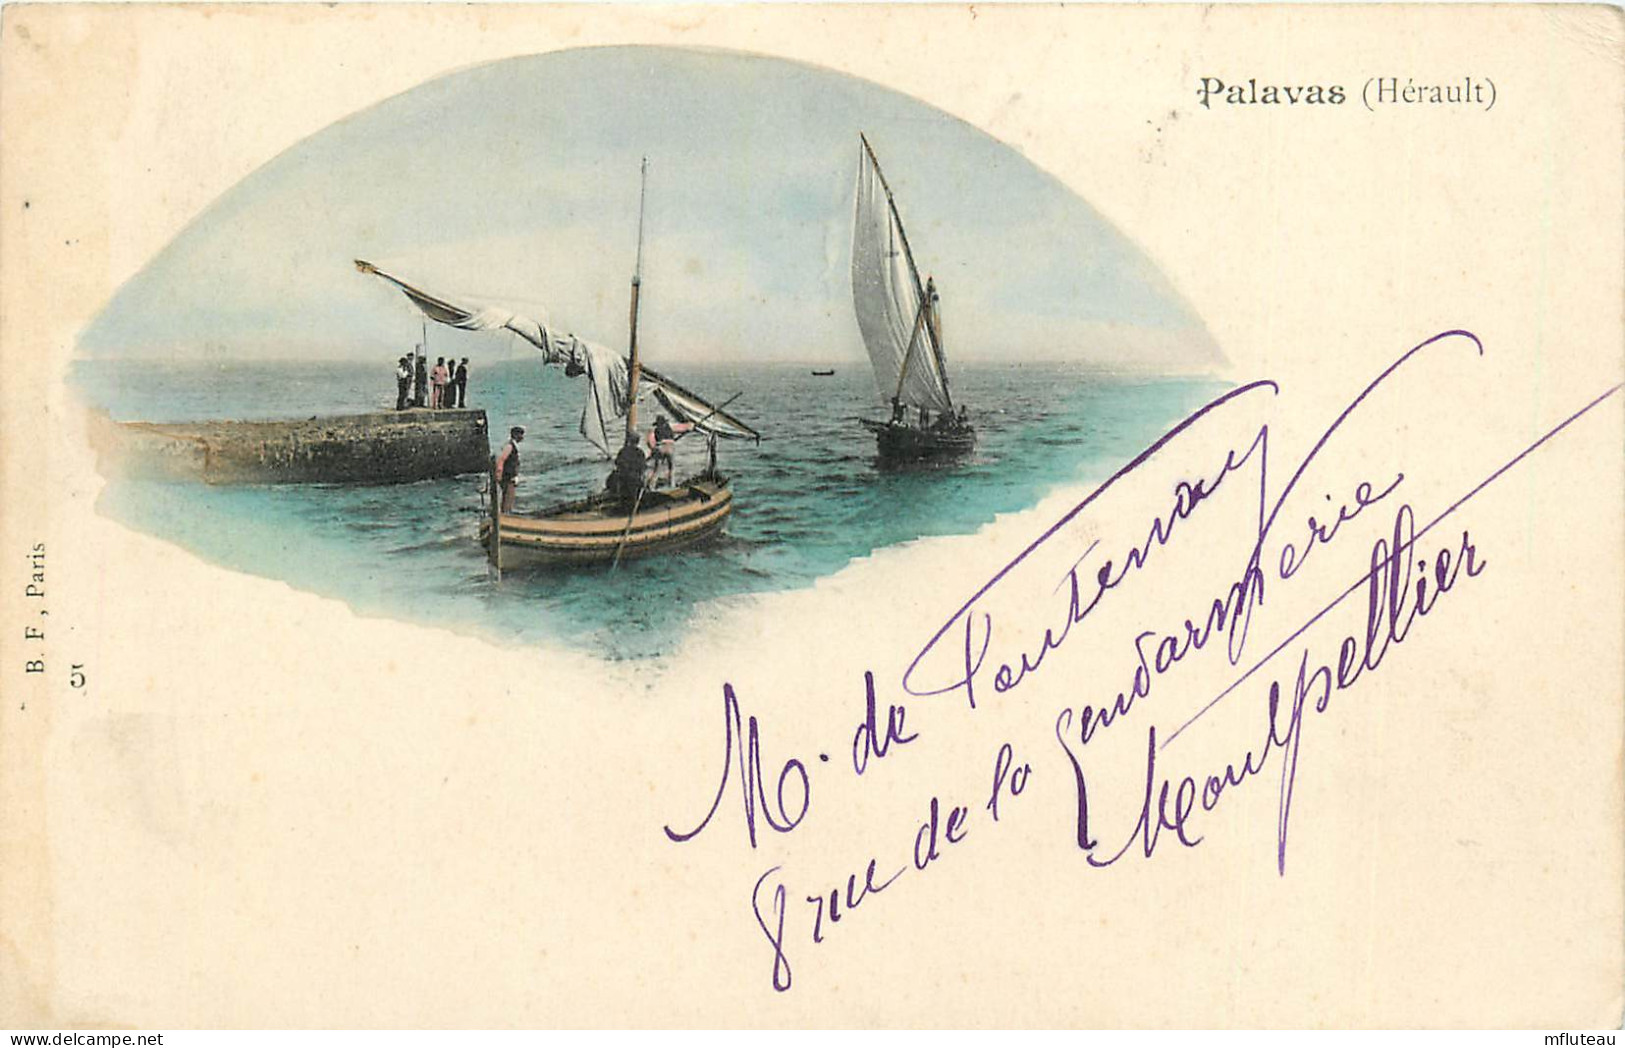 Palavas (Hérault)
B. F., Paris
5
M. de Fontenay
8 rue de la Gendarmerie
Montpellier
mfluteau